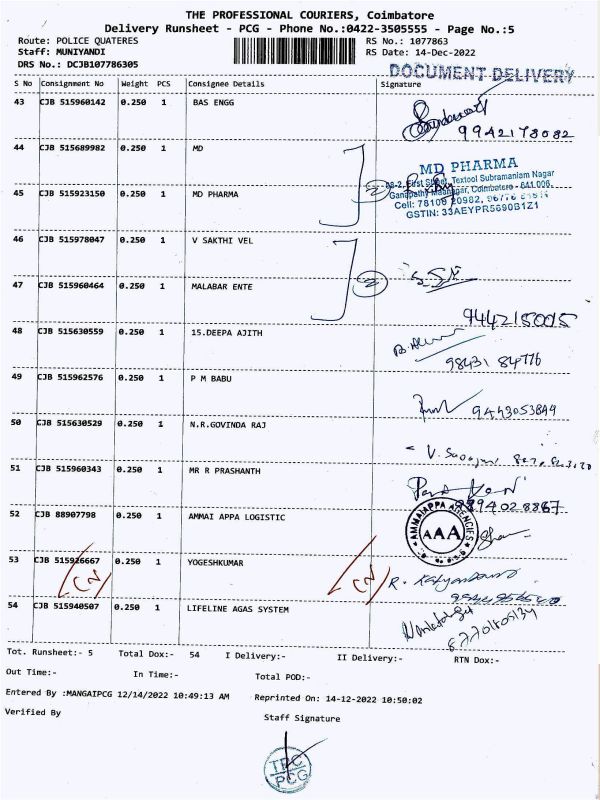 THE PROFESSIONAL COURIERS, Coimbatore
Delivery Runsheet - PCG - Phone No.:0422-3505555 - Page No.:5
Route: POLICE QUATERES RS No.: 1077863
Staff: MUNIYANDI RS Date: 14-Dec-2022
DRS No.: DCJB107786305
DOCUMENT DELIVERY
S No Consignment No Weight PCS Consignee Details Signature
43 CJB 515960142 0.250 1 BAS ENGG
9942178082
44 CJB 515689982 0.250 1 MD
MD PHARMA
First Street, Textool Subramaniam Nagar
Ganapathy Coimbatore - 641 006.
45 CJB 515923150 0.250 1 MD PHARMA
Cell: 78109 20982,
GSTIN: 33AEYPR5690B1Z1
46 CJB 515978047 0.250 1 V SAKTHI VEL
47 CJB 515960464 0.250 1 MALABAR ENTE
9442150015
48 CJB 515630559 0.250 1 15.DEEPA AJITH
98431 84776
49 CJB 515962576 0.250 1 P M BABU
9443053849
50 CJB 515630529 0.250 1 N.R.GOVINDA RAJ
51 CJB 515960343 0.250 1 MR R PRASHANTH
9894028867
52 CJB 88907798 0.250 1 AMMAI APPA LOGISTIC
AMMAIAPPA AGENCIES
AAA
53 CJB 515926667 0.250 1 YOGESHKUMAR
CN CN
54 CJB 515940507 0.250 1 LIFELINE AGAS SYSTEM
Tot. Runsheet:- 5 Total Dox:- 54 I Delivery:- II Delivery:- RTN Dox:-
Out Time:- In Time:- Total POD:-
Entered By :MANGAIPCG 12/14/2022 10:49:13 AM Reprinted On: 14-12-2022 10:50:02
Verified By Staff Signature
TPC
PCG